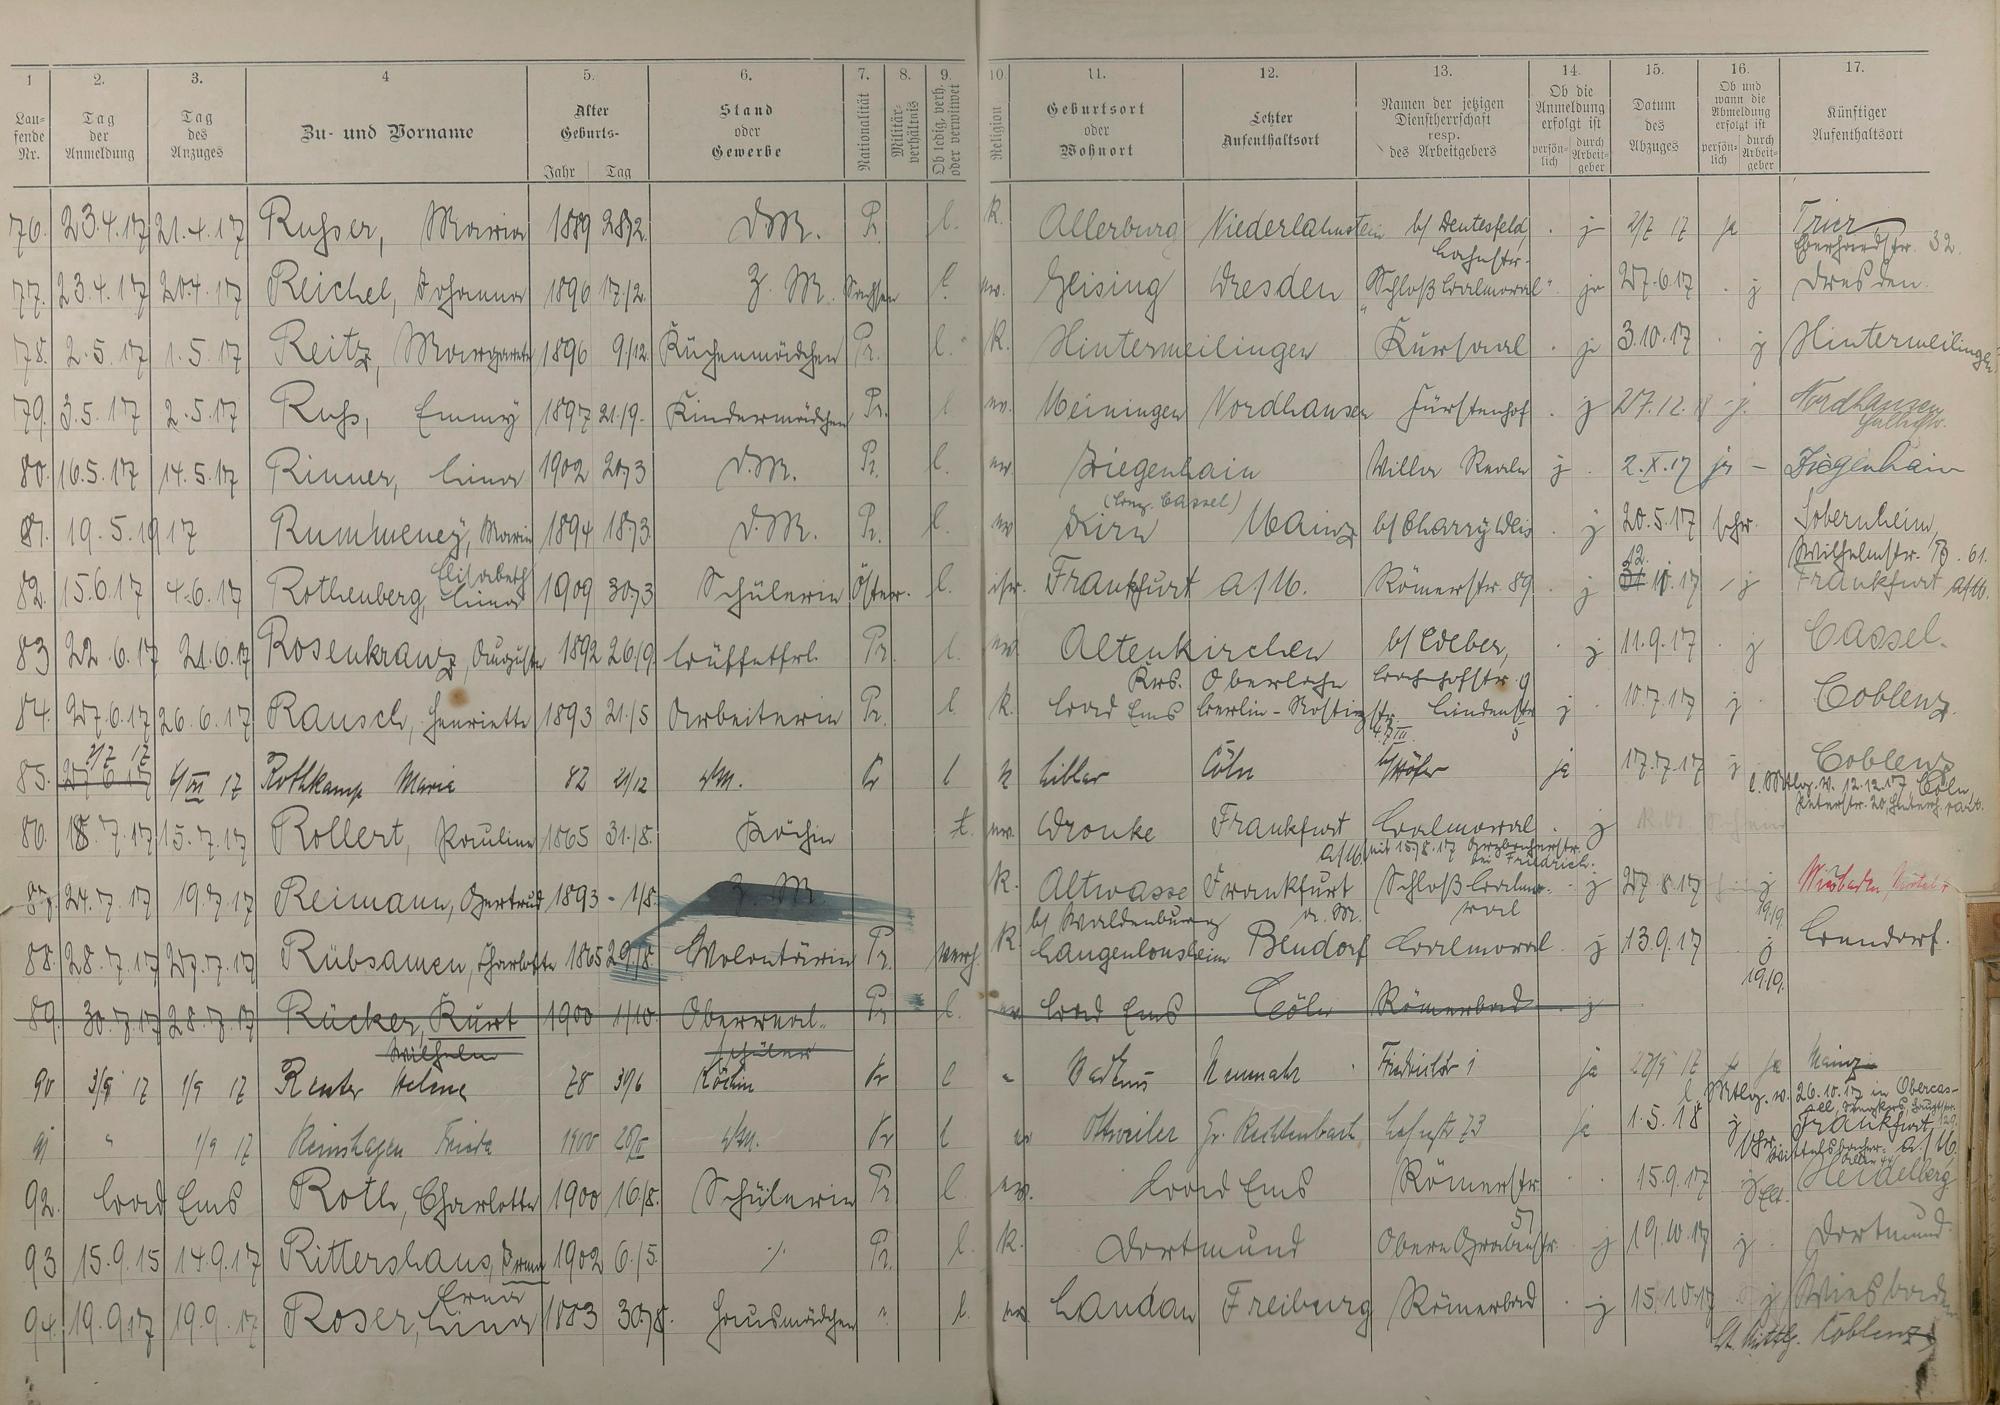 1 2. 3. 4 5. 6. 7. 8. 9. 10. 11. 12. 13. 14. 15. 16. 17.
Lau-
fende
Nr.
Tag
der
Anmeldung
Tag
des
Anzuges
Zu- und Vorname
Alter
Geburts-
Jahr Tag
Stand
oder
Gewerbe
Nationalität
Militär-
verhältnis
Ob ledig, verh.
oder verwitwet
Religion
Geburtsort
oder
Wohnort
Letzter
Aufenthaltsort
Namen der jetzigen
Dienstherrschaft
resp.
des Arbeitgebers
Ob die
Anmeldung
erfolgt ist
persön-
lich
durch
Arbeit-
geber
Datum
des
Abzuges
Ob und
wann die
Abmeldung
erfolgt ist
persön-
lich
durch
Arbeit-
geber
Künftiger
Aufenthaltsort
76. 23.4.17 21.4.17 Russer, Maria 1889 28/2. D.M. Pr. l. k. Allerburg Niederlahnstein b/ Deutesfeld, Lahnstr. j 2/7 17 ja Trier
Eberhardstr. 32.
77. 23.4.17 20.4.17 Reichel, Johanna 1896 17/2. Z. M. Sachsen l. ev. Geising Dresden "Schloß Balmoral" ja 27.6.17 . j Dresden.
78. 2.5.17 1.5.17 Reitz, Margarete 1896 9/12. Küchenmädchen Pr. l. k. Hintermeilingen Kursaal . j 3.10.17 . j Hintermeilingen
79. 3.5.17 2.5.17 Russ, Emmy 1897 21/9. Kindermädchen Pr. l ev. Meiningen Nordhausen Fürstenhof . j 27.12.17 - j. Nordhausen
80. 16.5.17 14.5.17 Rinner, Lina 1902 20/3 D.M. Pr. l. ev. Ziegenhain Villa Reale j . 2.X.17 ja - Ziegenhain
(Bez. Cassel)
81. 19.5.1917 Rummeney, Maria 1894 18/3. D.M. Pr. l. ev Kirn Mainz b/ Charry Weis . j 20.5.17 schr. Sobernheim,
Wilhelmstr. 61.
82. 15.6.17 4.6.17 Rothenberg, Elisabeth Lina 1909 30/3 Schülerin Öster. l. isr. Frankfurt a/M. Römerstr. 89 . j 12. 31.10.17 - j Frankfurt a/M.
83 22.6.17 21.6.17 Rosenkranz, Auguste 1892 26/9. Büffetfrl. Pr. l. ev. Altenkirchen b/ Weber, . j 11.9.17 . j Cassel.
Krs. Oberlahn Bahnhofstr. 9
84. 27.6.17 26.6.17 Rausch, Henriette 1893 21./5 Arbeiterin Pr. l k. Bad Ems Berlin - Lindenstr 5 j . 10.7.17 j . Coblenz.
85. 2/7 17 27 6 17 4/VII 17 Rothkamp Marie 82 21/12 D.M. Pr l k Libler Cöln b/ Höhr ja 17.7.17 j Coblenz
l. Mtlg. v. 12.12.17 Cöln
Peterstr. 20,
86. 18.7.17 15.7.17 Rollert, Pauline 1865 31./8. Köchin t. ev. Wronke Frankfurt a/M. Balmoral . j
seit 15/8.17 bei Friedrich.
87. 24.7.17 19.7.17 Reimann, Gertrud 1893 - 1/8. Z. M. k. Altwasser Frankfurt a. M. Schloß Balmoral . j 27 8.17 j Wiesbaden,
b/ Waldenburg
88. 28.7.17 27.7.17 Rübsamen, Charlotte 1865 29/8. Volontärin Pr. verh. k Langenlonsheim Bendorf Balmoral . j 13.9.17 19/9. j Bendorf.
89. 30.7.17 28.7.17 Rücker, Kurt Wilhelm 1900 1/10. Oberreal- schüler Pr l. ev Bad Ems Cöln Römerbad . j 19/9.
90 3/9 17 1/9 17 Reuter Helene 78 30/6 Köchin Pr l " Bad Ems Neumahr Friedrichstr 1 ja 27/9 17 ja Mainz
l. Mtlg. v. 26.10.17 in Obercas-
sel,
91 " 1/9 17 Reinshagen Frieda 1900 D.M. Pr l ev Ottweiler Gr. Rechtenbach Lahnstr 73 ja 1.5.18 j Frankfurt a/M.
92. Bad Ems Roth, Charlotte 1900 16/8. Schülerin Pr l. ev. Bad Ems Römerstr 15.9.17 j Heidelberg
93 15.9.15 14.9.17 Rittershaus, Irma Erna 1902 6./5. Pr. l. k. Dortmund Obere Grabenstr. 51 j 19.10.17 j . Dortmund.
94. 19.9.17 19.9.17 Roser, Lina 1883 30/8. Hausmädchen " l. ev Landau Freiburg Römerbad . j 15.10.17 j Wiesbaden
Lt. Mittlg. Coblenz